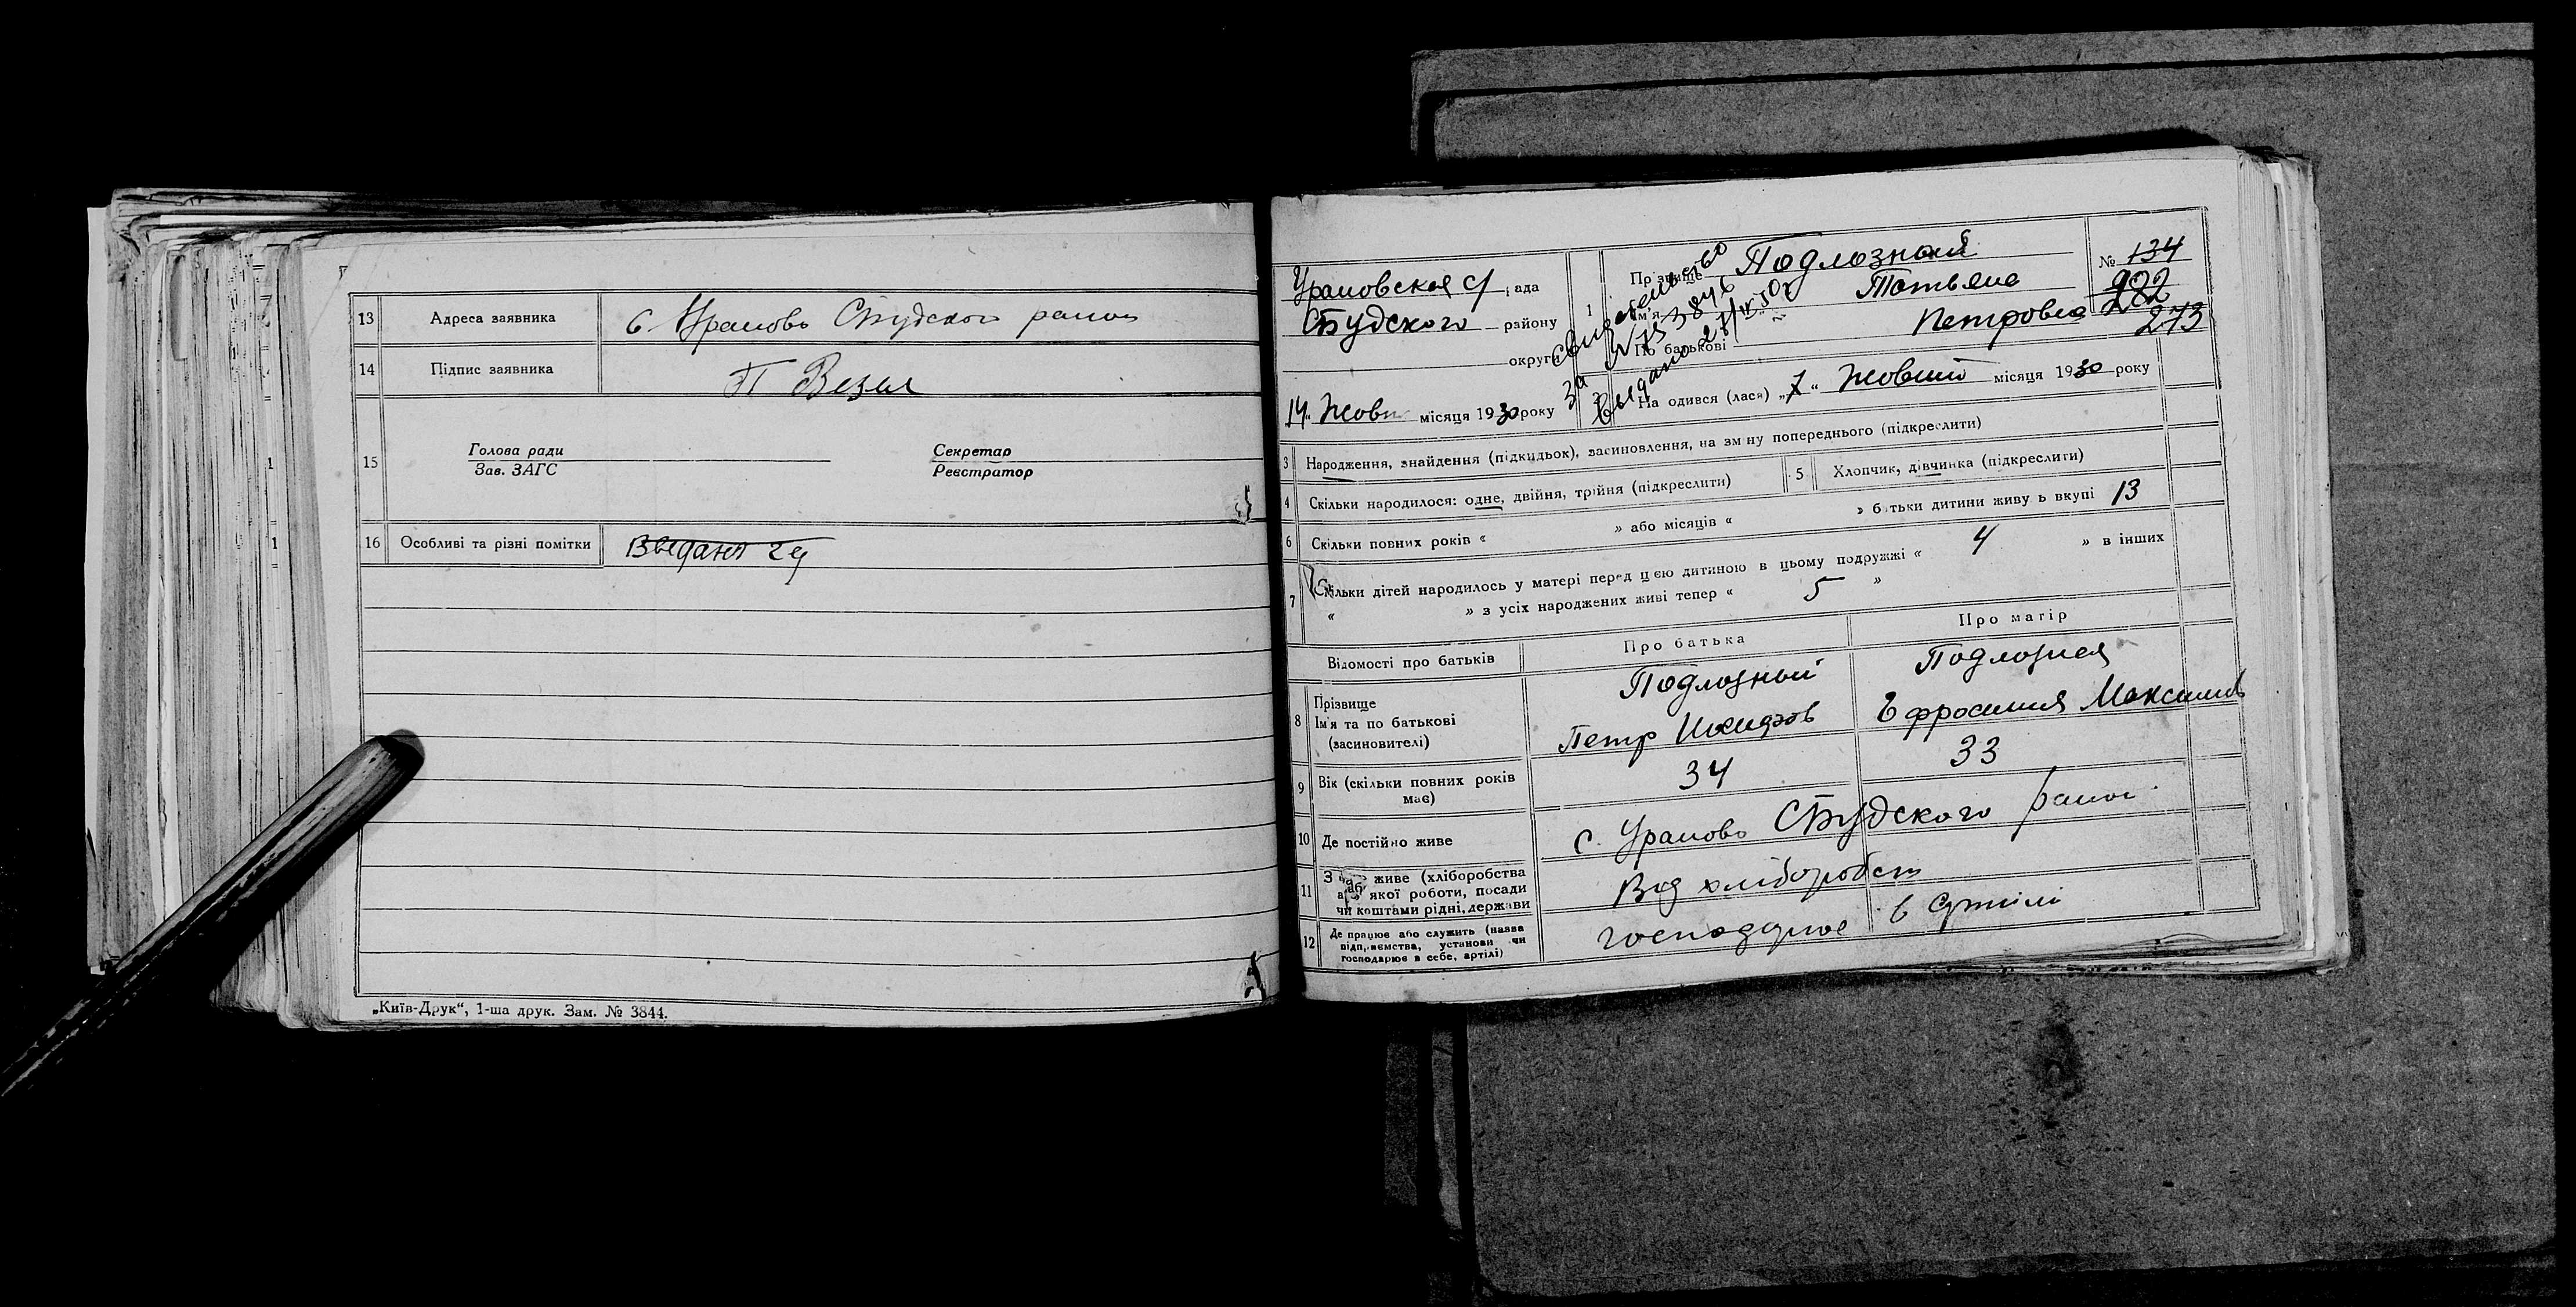 13 Адреса заявника с. Урамово Студского район
14 Підпис заявника П
15 Голова ради Секретар
Зав. ЗАГС Реєстратор
16 Особливі та різні помітки
„Київ-Друк“, 1-ша друк. Зам. № 3844.
Урамовская с/ рада
Студского району
округи
14 „ Жовт місяця 1930 року
1 Прізвище Подлозный
Ім'я Татьяна
По батькові Петровна
№ 134
982
282
273
Свидетельство
Выдано
2 На одився (лася) „ 7 “ Жовтня місяця 1930 року
3 Народження, знайдення (підкидьок), засиновлення, на зміну попереднього (підкреслити)
4 Скільки народилося: одне, двійня, трійня (підкреслити) 5 Хлопчик, дівчинка (підкреслити)
6 Скільки повних років « » або місяців « » батьки дитини живуть вкупі 13
7 Скільки дітей народилось у матері перед цією дитиною в цьому подружжі « 4 » в інших
« » з усіх народжених живі тепер « 5 »
Відомості про батьків Про батька Про матір
8 Прізвище Подлозный Подлозная
Ім'я та по батькові Петр Ефросиния Максимов
(засновителі)
9 Вік (скільки повних років має) 34 33
10 Де постійно живе с. Урамово Студского район
11 З чого живе (хліборобства Від хліборобст
або якої роботи, посади
чи коштами рідні, держави
12 Де працює або служить (назва господарює в артілі
підприємства, установи чи
господарює в себе, артілі)